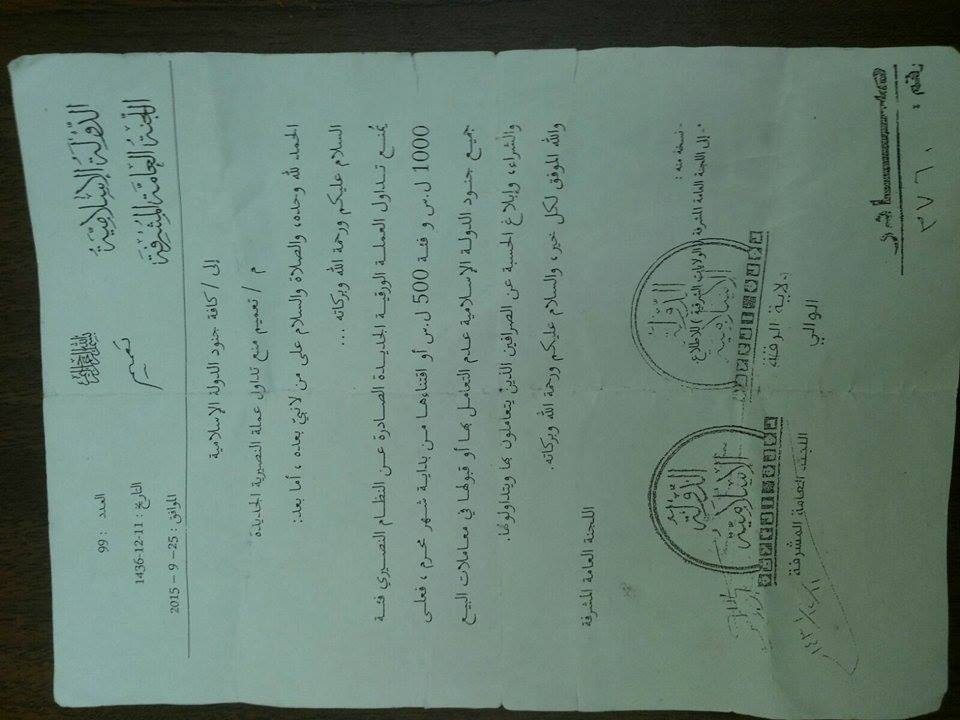 الدولة الإسلامية
اللجنة العامة المشرفة
تعميم
العدد : 99
التاريخ : 11-12-1436
الموافق : 25 – 9 – 2015
إلى / كافة جنود الدولة الإسلامية
م / تعميم منع تداول عملة النصيرية الجديدة
الحمد لله وحده، والصلاة والسلام على من لا نبيّ بعده ، أما بعد:
السلام عليكم ورحمة الله وبركاته ...
يُمنع تداول العملة الورقية الجديدة الصادرة عن النظام النصيري فئة
1000 ل.س و فئة 500 ل.س أو اقتناءها من بداية شهر محرم ، فعلى
جميع جنود الدولة الإسلامية عدم التعامل بها أو قبولها في معاملات البيع
والشراء، وإبلاغ الحسبة عن الصرافين الذين يتعاملون بها ويتداولونها.
والله الموفق لكل خير، والسلام عليكم ورحمة الله وبركاته.
اللجنة العامة المشرفة
- نسخة منه :
- إلى اللجنة العامة المشرفة ( الولايات الشرقية ) للاطلاع.
الدولة
الإسلامية
ولاية الرقة
الوالي
الدولة
الإسلامية
اللجنة العامة المشرفة
رقم :
٣٧٦٠